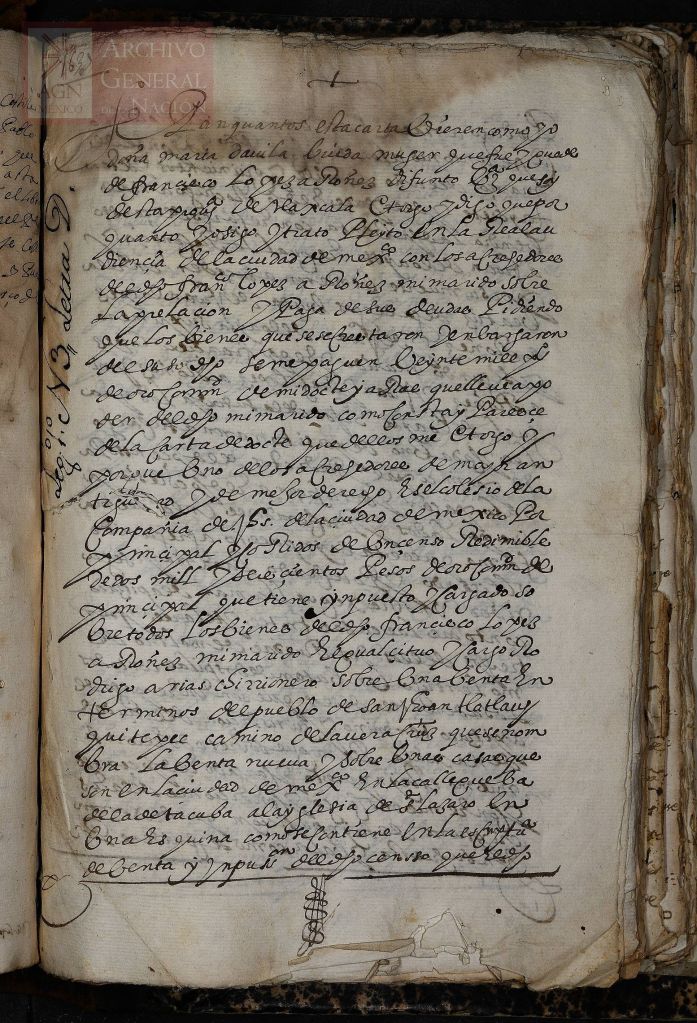 ARCHIVO
GENERAL
DE LA NACIÓN
AGN
MÉXICO
+
quantos esta carta Vieren como yo
doña maria davila biuda muger que fue
de francisco Lopez a Roñez difunto Vza que soy
de sta de tlaxcala Otorgo y digo que por
quanto yo sigo y trato Pleyto En La Real au
diencia de la ciudad de mexco con los acrehedores
del dho franco lopez a Roñez mi marido sobre
La prelacion y Paga de sus deudas Pidiendo
que los bienes que se secrestaron y enbargaron
del suso dho se me paguen beynte mill ps
de oro comun de mi docte y aRas que lleuo a po
der del dho mi marido como consta y Pareçe
de la carta de docte que dellos me Otorgo y
porque Uno de los acrehedores de mas an
tiguedad y de mejor derecho Es el colesio de la
Compañia de Jhs. de la ciudad de mexico Por
principal y coRidos de Un censo Redimible
de dos mill y Pesos de oro comun de
principal que tiene ynpuesto y cargado so
bre todos Los bienes del dho francisco Lopez
a Roñez mi marido El qual cituo y cargo Ro
drigo arias chirrionero sobre Una benta En
terminos del pueblo de san Juan tlatlau
quitepec camino de la uera cruz que se nom
bra La benta nueua y sobre Unas casas que
son En la ciudad de mexco En la calle que Ba
de la de tacuba a la yglesia de s. Lazaro En
Una Esquina como se contiene En la escriptura
de benta y ynpusicon del dho censso que El dho
Legio 1o N 3, Letra D.